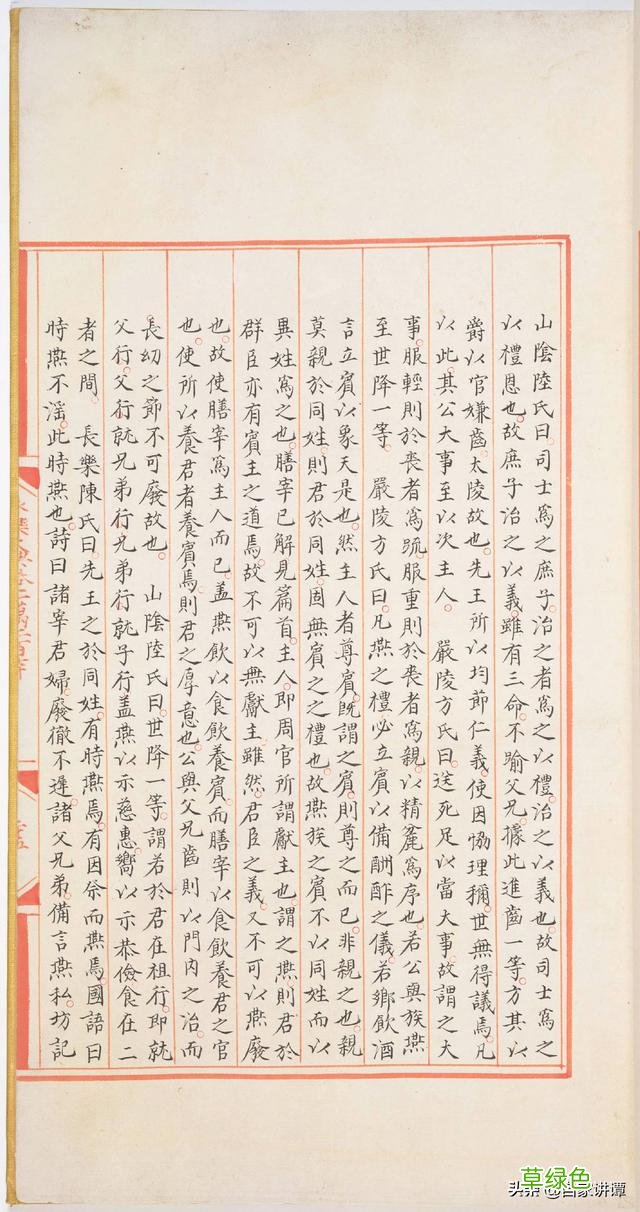 山陰陸氏曰司士爲之庶子治之者爲之以禮治之以義也故司士爲之
以禮恩也故庶子治之以義雖有三命不踰父兄據此進齒一等方其以
爵以官嫌齒太陵故也先王所以均節仁義使因恤理稱世無得議焉凡
以此其公大事至以次主人 嚴陵方氏曰送死足以當大事故謂之大
事服輕則於喪者爲䟽服重則於喪者爲親以精麄爲序也若公與族燕
至世降一等 嚴陵方氏曰凡燕之禮必立賓以備酬酢之儀若鄉飲酒
言立賓以象天是也然主人者尊賓旣謂之賓則尊之而已非親之也親
莫親於同姓則君於同姓固無賓之之禮也故燕族之賓不以同姓而以
異姓爲之也膳宰已解見篇首主人即周官所謂獻主也謂之燕則君於
群臣亦有賓主之道焉故不可以無獻主雖然君臣之義又不可以燕廢
也故使膳宰爲主人而已盖燕飲以食飲養賓而膳宰以食飲養君之官
也使所以養君者養賓焉則君之厚意也公與父兄齒則以門內之治而
長幼之節不可廢故也 山陰陸氏曰世降一等謂若於君在祖行即就
父行父行就兄弟行兄弟行就子行盖燕以示慈惠嚮以示恭儉食在二
者之間 長樂陳氏曰先王之於同姓有時燕焉有因祭而燕焉國語曰
時燕不滛此時燕也詩曰諸宰君婦廢徹不遲諸父兄弟備言燕私坊記
草绿色
头条 @百家讲谭